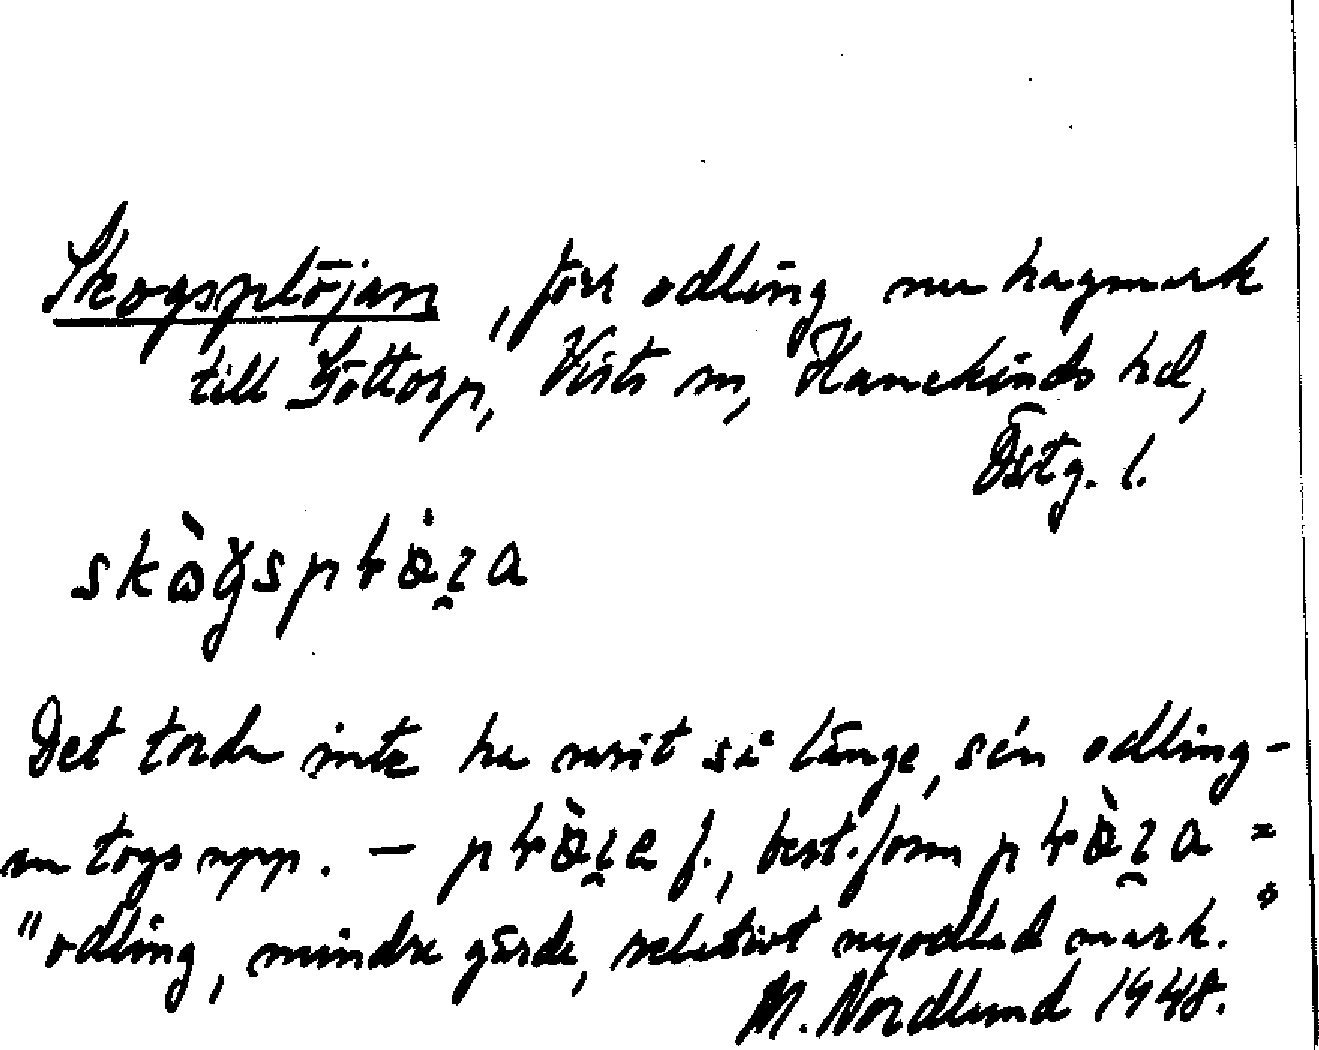 Skogsplöjan, förr odling nu hagmark
till Göttorp, Vists sn, Hanekinds hd,
Östg. l.
Det torde inte ha varit så länge, sén odling-
en togs upp. — f., best. form =
"odling, mindre gärde, relativt nyodlad mark."
M. Nordlund 1948.